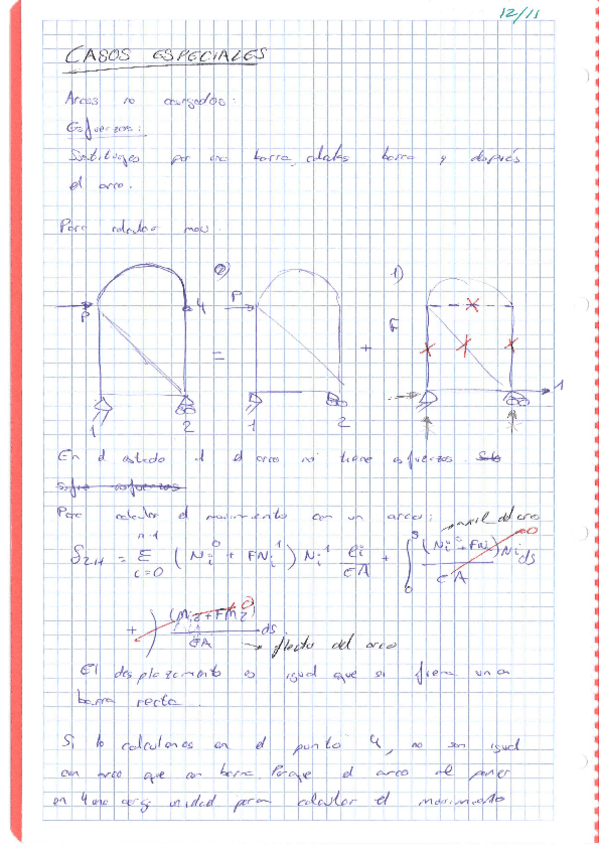 12/11
CASOS ESPECIALES
Arcos no cargados:
Esfuerzos:
Sustituyes por una barra, calculas barra y después
el arco.
Para calcular mov.
0) 1)
P 4 P F
= + 1
1 2 1 2
En el estado 1 el arco no tiene esfuerzos. Solo
sufre esfuerzos
Para calcular el movimiento con un arco: → axil del arco
δ2H = Σ (Ni⁰ + FNi¹) Ni¹ li/EA + ∫ (Ni⁰ + FNi)Ni/EA ds
n-1
i=0
0
+ ∫ (Miz + FMz)/EA ds → flector del arco
0
El desplazamiento es igual que si fuera una
barra recta.
Si lo calculamos en el punto 4, no son igual
con arco que con barra. Porque el arco al poner
en 4 una carga unidad para calcular el movimiento